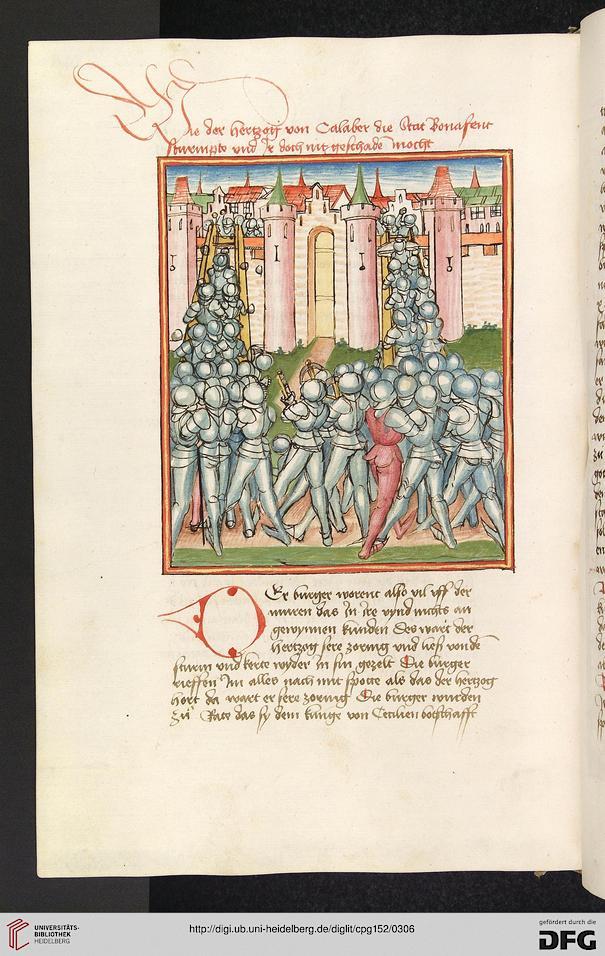 Wie der hertzog von Calaber die Stat Bonafent
sturmpte vnd jr doch nit geschade mocht
Der burger worent also vil vff der
muren das in ire vynd nichts an
gewynnen kunden Des wart der
hertzog sere zornig vnd ließ von de
sturm vnd kerte wyder in sin gezelt Die burger
rieffen im alles nach mit spotte als das der hertzog
hort da wart er sere zornig Die burger wurden
zu Rate das sy dem kunge von Cecilien botschafft
UNIVERSITÄTS-
BIBLIOTHEK
HEIDELBERG
http://digi.ub.uni-heidelberg.de/diglit/cpg152/0306
gefördert durch die
DFG